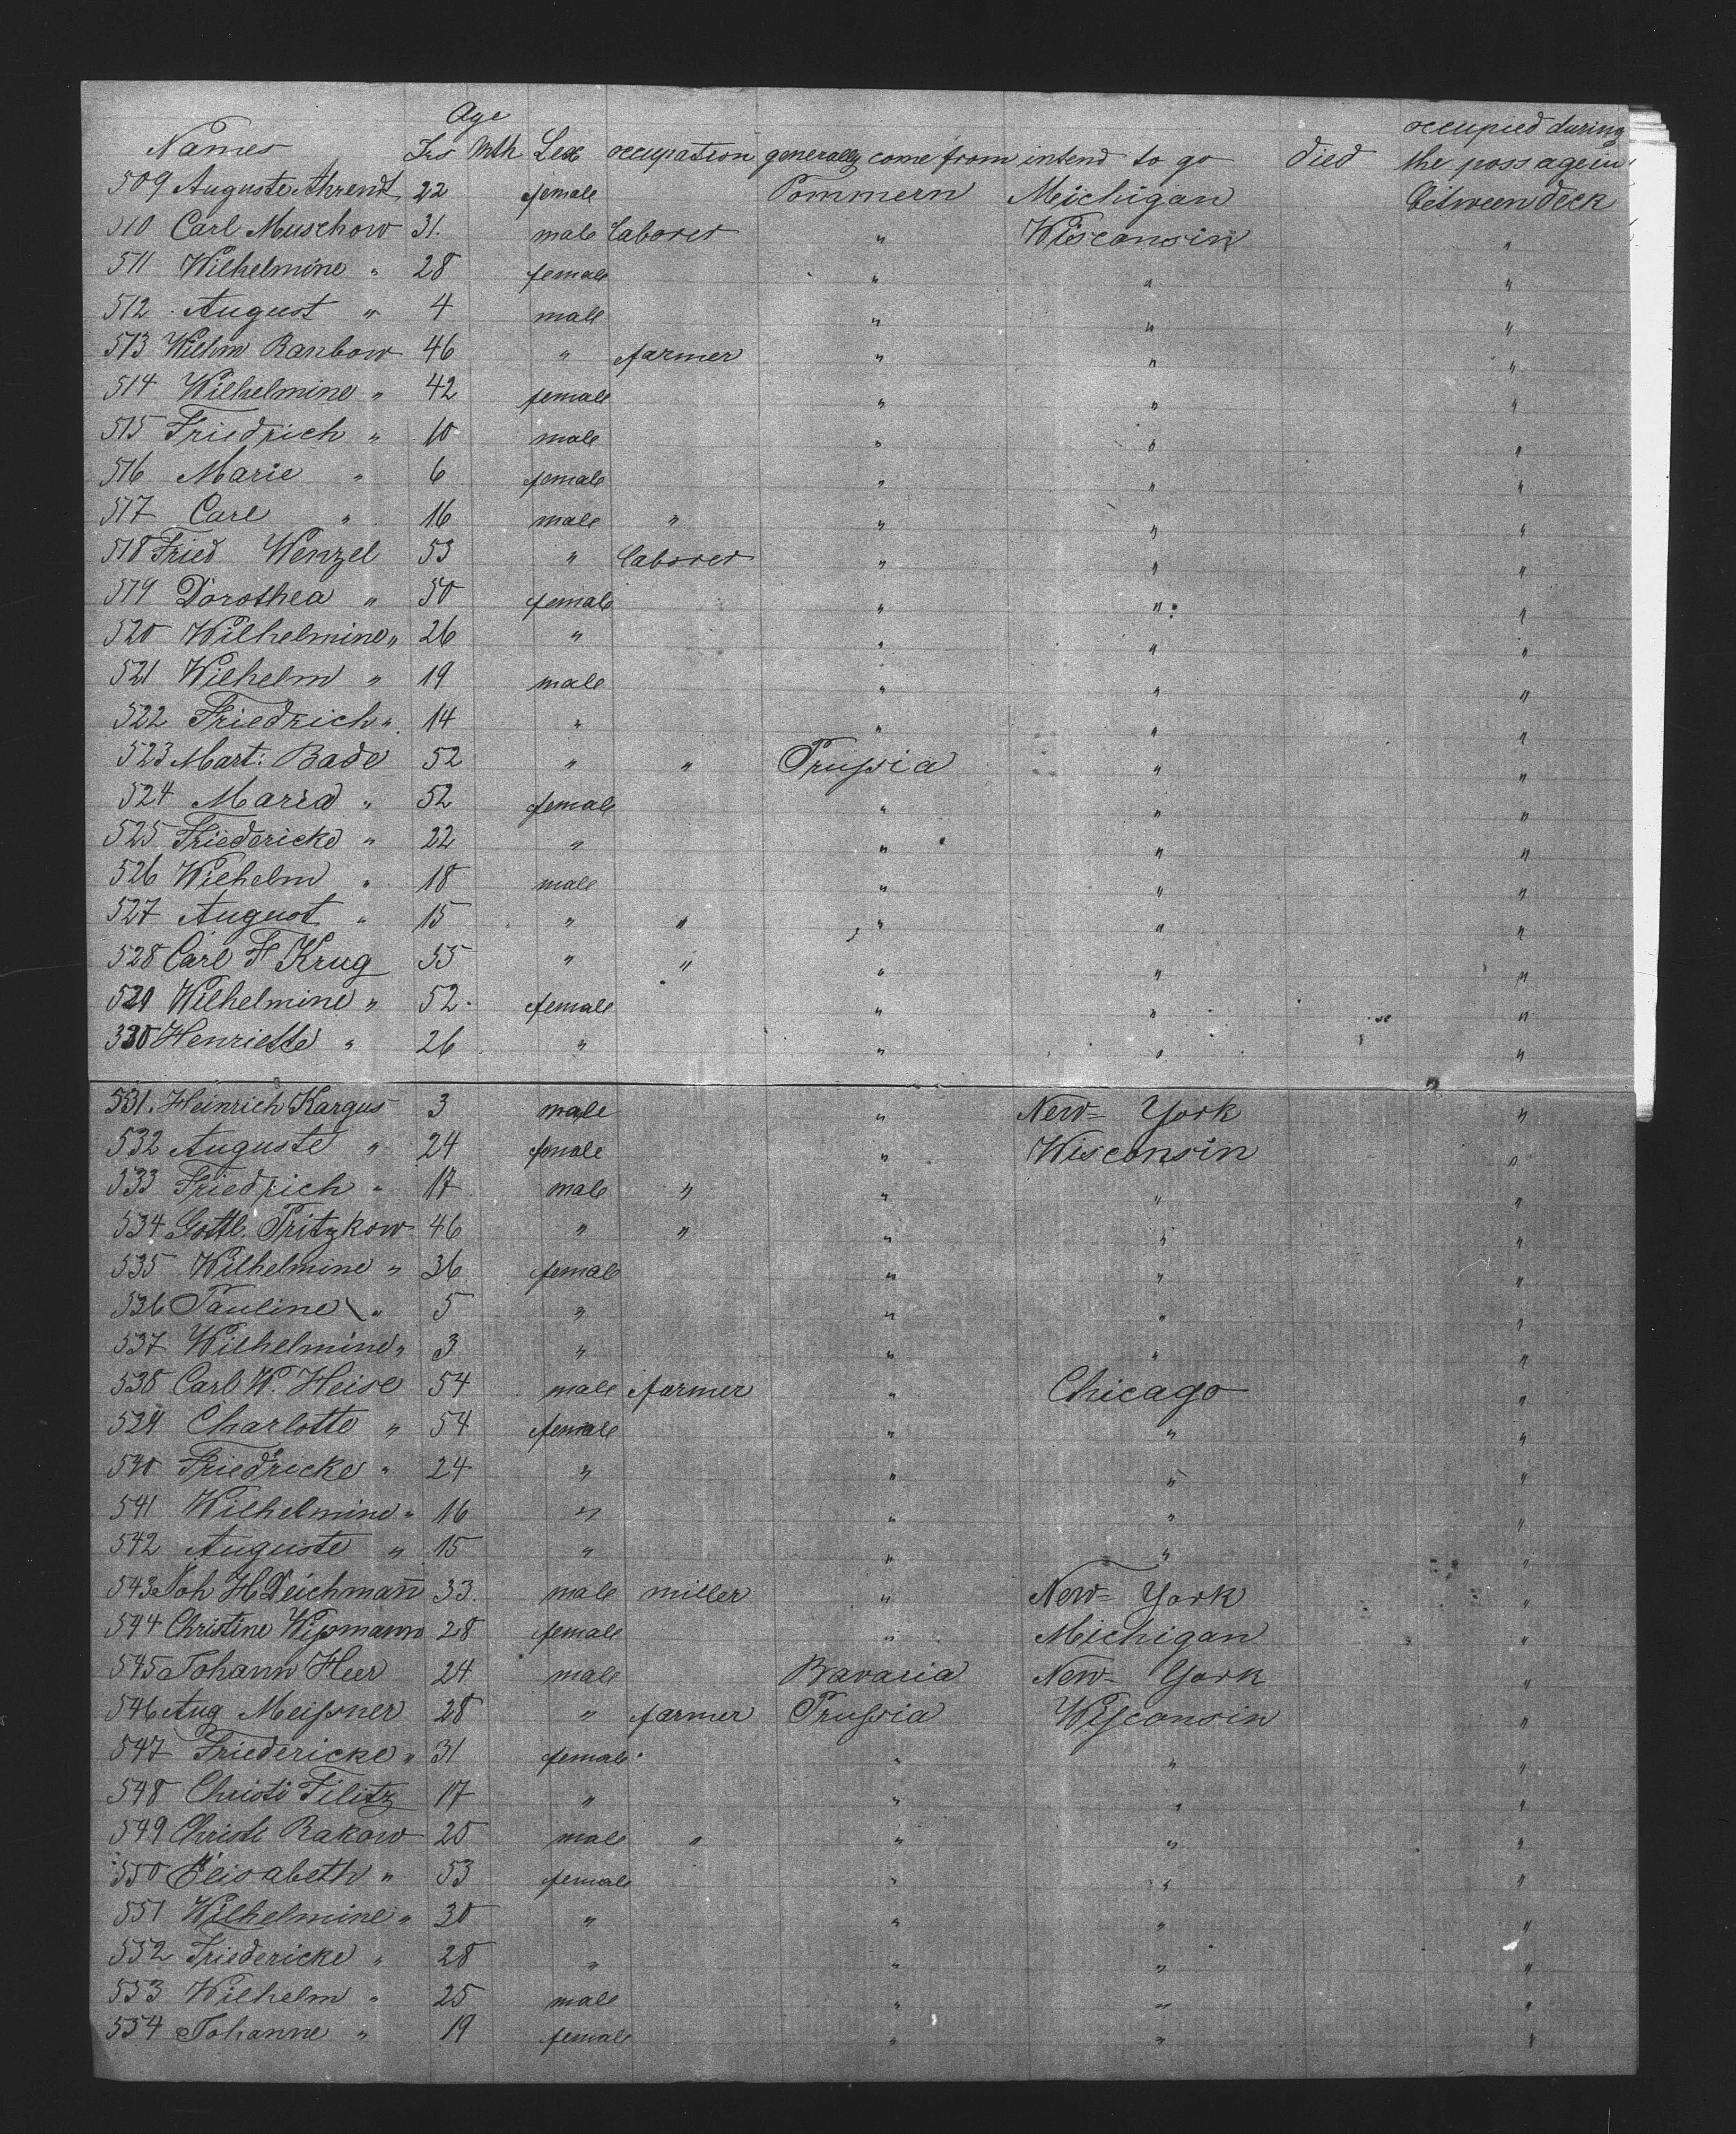 Age occupied during
Names Yrs Mth Sex occupation generally come from intend to go died the passage in
509 Auguste Ahrendt 22 female Pommern Michigan between deck
510 Carl Muschow 31. male laborer " Wisconsin "
511 Wilhelmine " 28 female " " "
512 August " 4 male " " "
513 Wilhm Ranbow 46 " farmer " " "
514 Wilhelmine " 42 female " " "
515 Friedrich " 10 male " " "
516 Marie " 6 female " " "
517 Carl " 16 male " " " "
518 Fried Wenzel 53 " laborer " " "
519 Dorothea " 50 female " " "
520 Wilhelmine " 26 " " " "
521 Wilhelm " 19 male " " "
522 Friedrich " 14 " " " "
523 Mart: Bade 52 " " Prussia " "
524 Maria " 52 female " " "
525 Friedericke " 22 " " " "
526 Wilhelm " 18 male " " "
527 August " 15 " " " " "
528 Carl F Krug 55 " " " " "
529 Wilhelmine " 52 female " " "
530 Henriette " 26 " " " "
531. Heinrich Kargus 3 male " New-York "
532 Auguste " 24 female " Wisconsin "
533 Friedrich " 17 male " " " "
534 Gottl. Pritzkow 46 " " " " "
535 Wilhelmine " 36 female " " "
536 Pauline " 5 " " " "
537 Wilhelmine " 3 " " " "
538 Carl W. Heise 54 male farmer " Chicago "
539 Charlotte " 54 female " " "
540 Friedricke " 24 " " " "
541 Wilhelmine " 16 " " " "
542 Auguste " 15 " " " "
543 Joh H Deichmann 33. male miller " New-York "
544 Christine Wissmann 28 female " Michigan "
545 Johann Heer 24 male Bavaria New-York "
546 Aug Meissner 28 " farmer Prussia Wisconsin "
547 Friedericke " 31 female " " "
548 Christi Tilitz 17 " " " "
549 Christ Rakow 25 male " " " "
550 Elisabeth " 53 female " " "
551 Wilhelmine " 30 " " " "
552 Friedericke " 28 " " " "
553 Wilhelm " 25 male " " "
554 Johanne " 19 female " " "